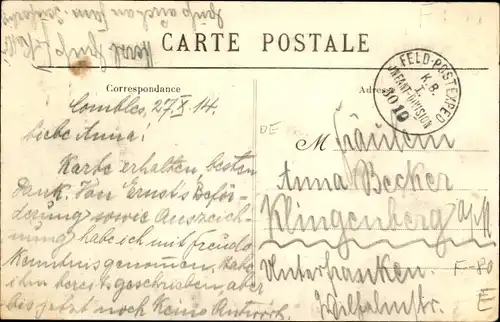 CARTE POSTALE
Correspondance
Adresse
FELD-POSTEXPED.
K. B.
I.
INFANT.-DIVISION
Combles, 27/X. 14.
Liebe Anna!
Karte erhalten, besten
Dank. Von Ernst's Beför-
derung sowie Auszeich-
nung habe ich mit Freude
Kenntnis genommen, habe
ihm bereits geschrieben, aber
bis jetzt noch keine Antwort.
DE
M Fräulein
Anna Becker
Klingenberg a/M
Unterfranken.
Wilhelmstr.
F-80
E